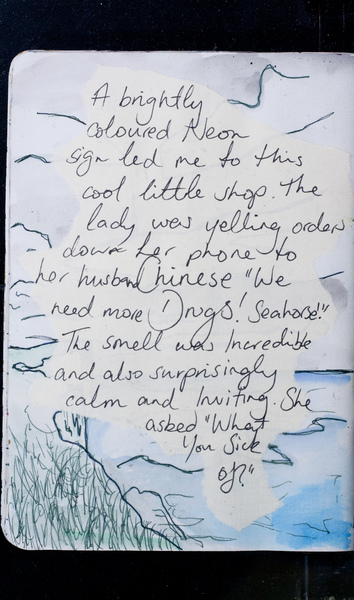 A brightly
coloured Neon
sign led me to this
cool little shop. The
lady was yelling orders
down her phone to
her husband Chinese "We
need more Drugs! Seahorse!"
The smell was Incredible
and also surprisingly
calm and Inviting. She
asked "What
You Sick
of?"